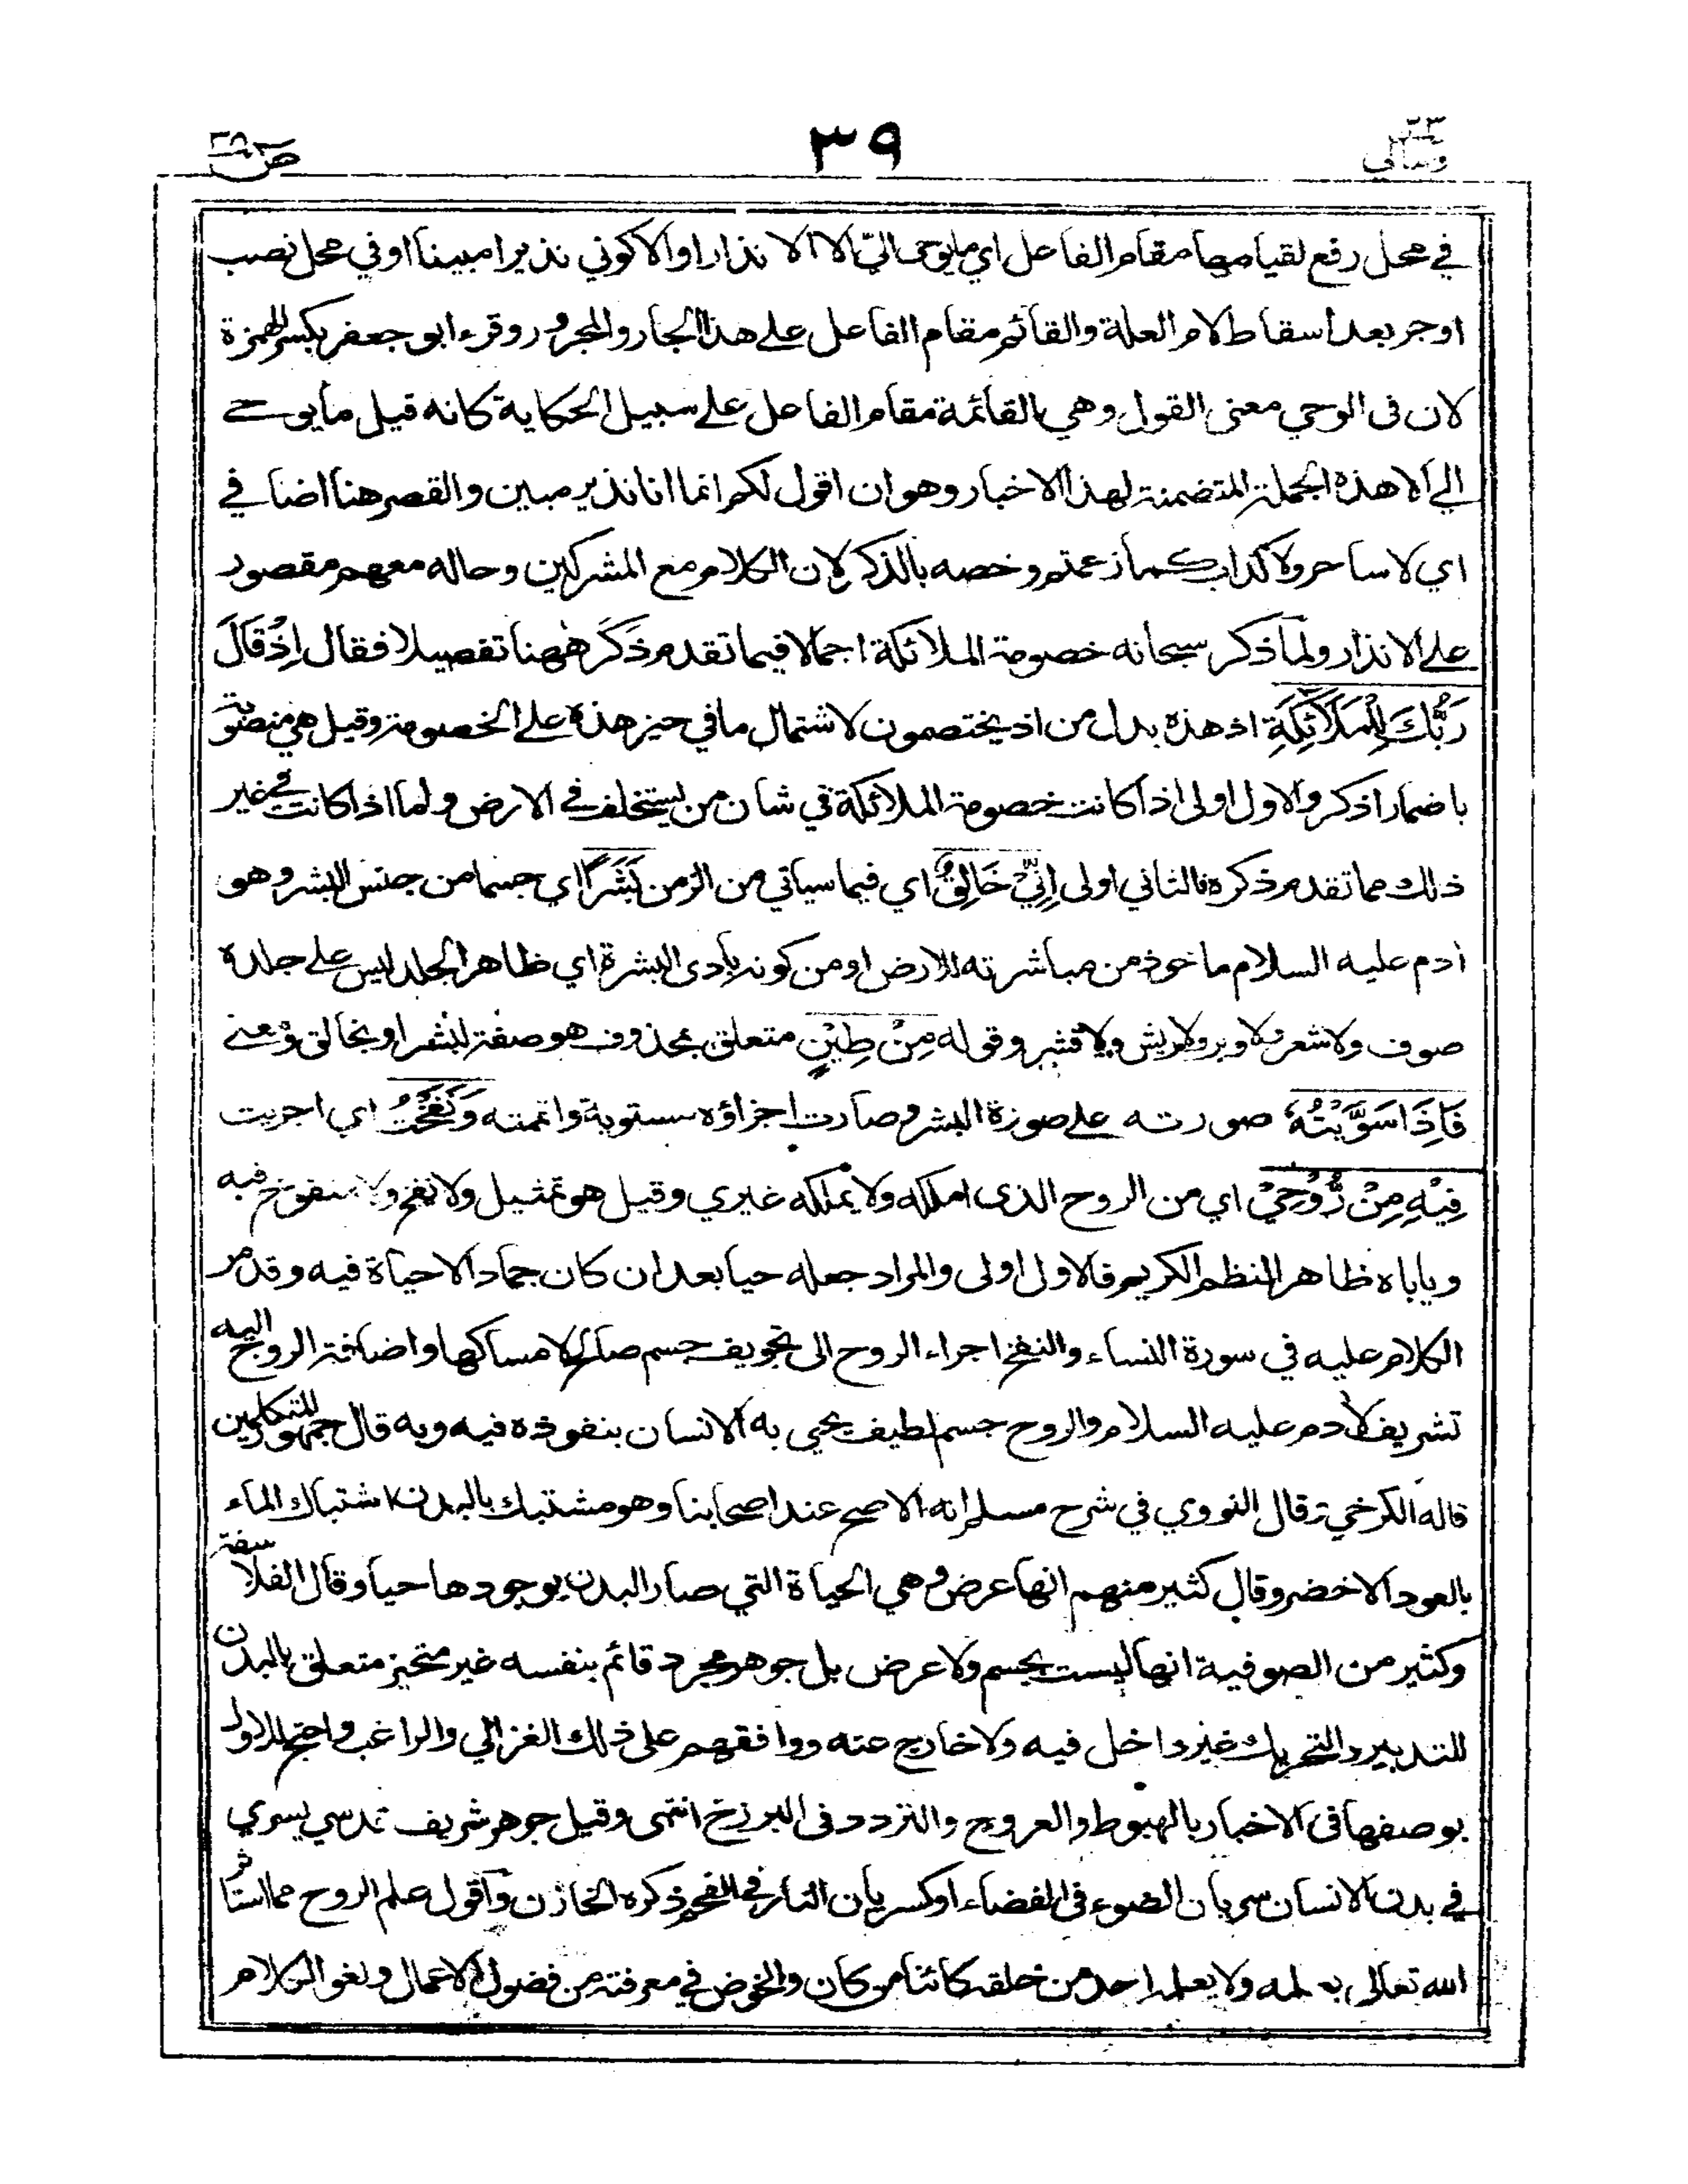 ومالي ٢٣ ٣٩ ص ٣٨
في محل رفع لقيامها مقام الفاعل اي مايوحى اليّ الا الانذار او الا كوني نذيرا مبينا او في محل نصب
او جر بعد اسقاط لام العلة والقائم مقام الفاعل على هذا الجار والمجرور وقرء ابو جعفر بكسر الهمزة
لان فى الوحي معنى القول وهي القائمة مقام الفاعل على سبيل الحكاية كانه قيل مايوحى
الي الا هذه الجملة المتضمنة لهذا الاخبار وهو ان اقول لكم انما انا نذير مبين والقصر هنا اضافي
اي لا ساحر ولا كذاب كما زعمتم وخصه بالذكر لان الكلام مع المشركين وحاله معهم مقصور
على الانذار ولما ذكر سبحانه خصومة الملائكة اجمالا فيما تقدم ذَكَرَ هٰهنا تفصيلا فقال اِذْ قَالَ
رَبُّكَ لِلْمَلَآئِكَةِ اذ هذه بدل من اذ يختصمون لاشتمال ما في حيز هذه على الخصومة وقيل هي منصوبة
باضمار اذكر والاول اولى اذا كانت خصومة الملائكة في شان من يستخلف في الارض واما اذا كانت في غير
ذلك مما تقدم ذكره فالثاني اولى اِنِّيْ خَالِقٌ اي فيما سياتي من الزمن بَشَرًا اي جسما من جنس البشر وهو
ادم عليه السلام ماخوذ من مباشرته للارض او من كونه بادى البشرة اي ظاهر الجلد ليس على جلده
صوف ولا شعر ولا وبر ولا ريش ولا قشر وقوله مِنْ طِيْنٍ متعلق بمحذوف هو صفة لبشرا او بخالق ومعنى
فَاِذَا سَوَّيْتُهٗ صورته على صورة البشر وصارت اجزاؤه مستوية واتممته وَنَفَخْتُ اي اجريت
فِيْهِ مِنْ رُّوْحِيْ اي من الروح الذى املكه ولا يملكه غيري وقيل هو تمثيل ولا نفخ ولا منفوخ فيه
وياباه ظاهر النظم الكريم فالاول اولى والمراد جعله حيا بعد ان كان جمادا لا حياة فيه وقد مر
الكلام عليه في سورة النساء والنفخ اجراء الروح الى تجويف جسم صالح لامساكها واضافة الروح اليه
تشريف لادم عليه السلام والروح جسم لطيف يحيى به الانسان بنفوذه فيه وبه قال جمهور المتكلمين
قاله الكرخي قال النووي في شرح مسلم انه الاصح عند اصحابنا وهو مشتبك بالبدن كاشتباك الماء
بالعود الاخضر وقال كثير منهم انها عرض وهي الحياة التي صار البدن بوجودها حيا وقال الفلاسفة
وكثير من الصوفية انها ليست بجسم ولا عرض بل جوهر مجرد قائم بنفسه غير متحيز متعلق بالبدن
للتدبير والتحريك غير داخل فيه ولا خارج عنه ووافقهم على ذلك الغزالي والراغب واحتج للاول
بوصفها فى الاخبار بالهبوط والعروج والتردد فى البرزخ انتهى وقيل جوهر شريف قدسي يسري
في بدن الانسان سريان الضوء فى الفضاء او كسريان النار في الفحم ذكره الخازن واقول علم الروح مما استأثر
الله تعالى بعلمه ولا يعلمه احد من خلقه كائنا من كان والخوض في معرفته من فضول الاعمال ولغو الكلام